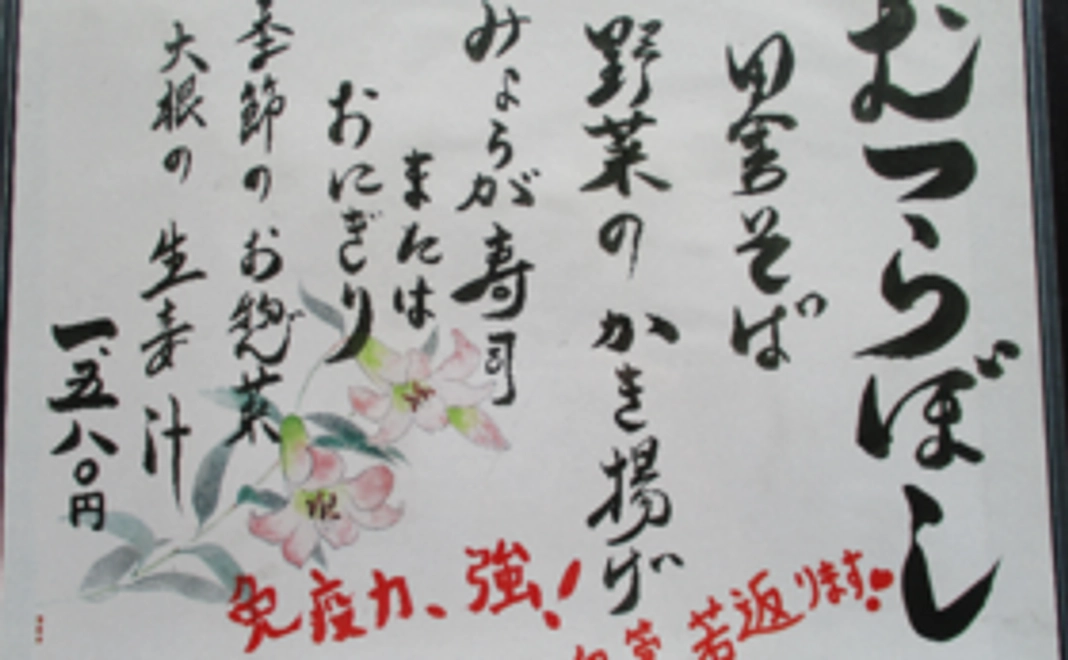 むつらぼし
田舎そば
野菜のかき揚げ
みょうが寿司
または
おにぎり
季節のお惣菜
大根の生姜汁
一、五八〇円
免疫力、強!
若返ります!